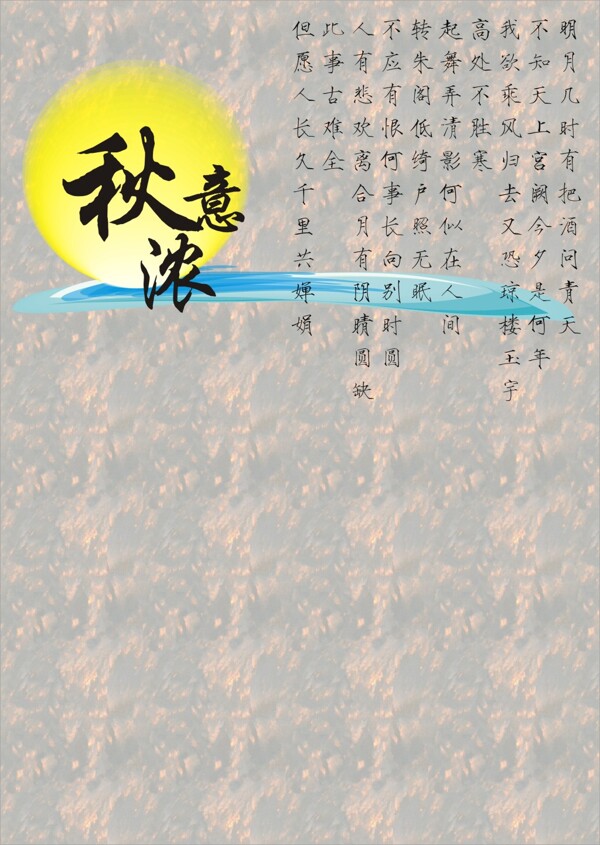 明月几时有把酒问青天
不知天上宫阙今夕是何年
我欲乘风归去又恐琼楼玉宇
高处不胜寒
起舞弄清影何似在人间
转朱阁低绮户照无眠
不应有恨何事长向别时圆
人有悲欢离合月有阴晴圆缺
此事古难全
但愿人长久千里共婵娟
秋意浓